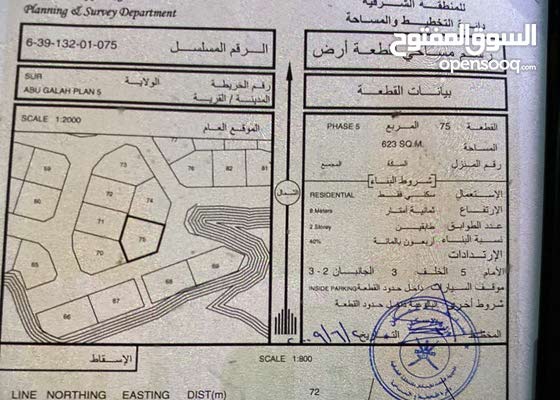 للمنطقة الشرقية
دائرة التخطيط والمساحة
Planning & Survey Department
السوق المفتوح
opensooq.com
مساحي لقطعة أرض
الرقم المسلسل
6-39-132-01-075
بيانات القطعة
رقم الخريطة
الولاية
SUR
المدينة / القرية
ABU GALAH PLAN 5
SCALE 1:2000
الموقع العام
القطعة 75 المربع PHASE 5
المساحة 623 SQ.M.
رقم المنزل السكة المجمع
شروط البناء
الاستعمال سكني فقط RESIDENTIAL
الارتفاع ثمانية أمتار 8 Meters
عدد الطوابق طابقين 2 Storey
نسبة البناء أربعون بالمائة 40%
الإرتدادات
الأمام 5 الخلف 3 الجانبان 2 - 3
موقف السيارات داخل حدود القطعة INSIDE PARKING
شروط أخرى داخل حدود القطعة
الشمال
73
74
72
71
75
70
69
68
67
66
60
61
SCALE 1:800
الإسقاط
LINE NORTHING EASTING DIST(m)
72